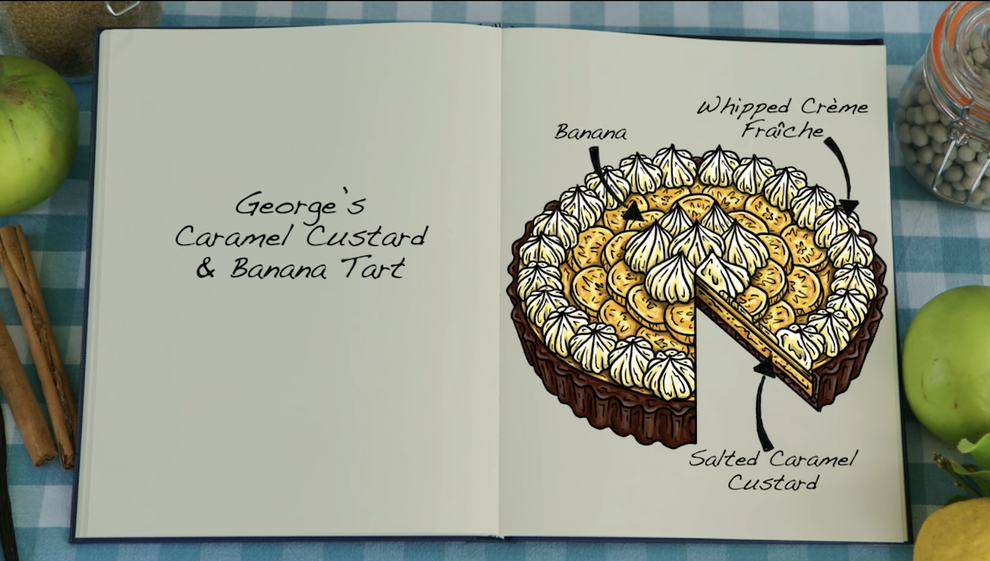 George's
Caramel Custard
& Banana Tart
Banana
Whipped Crème
Fraîche
Salted Caramel
Custard